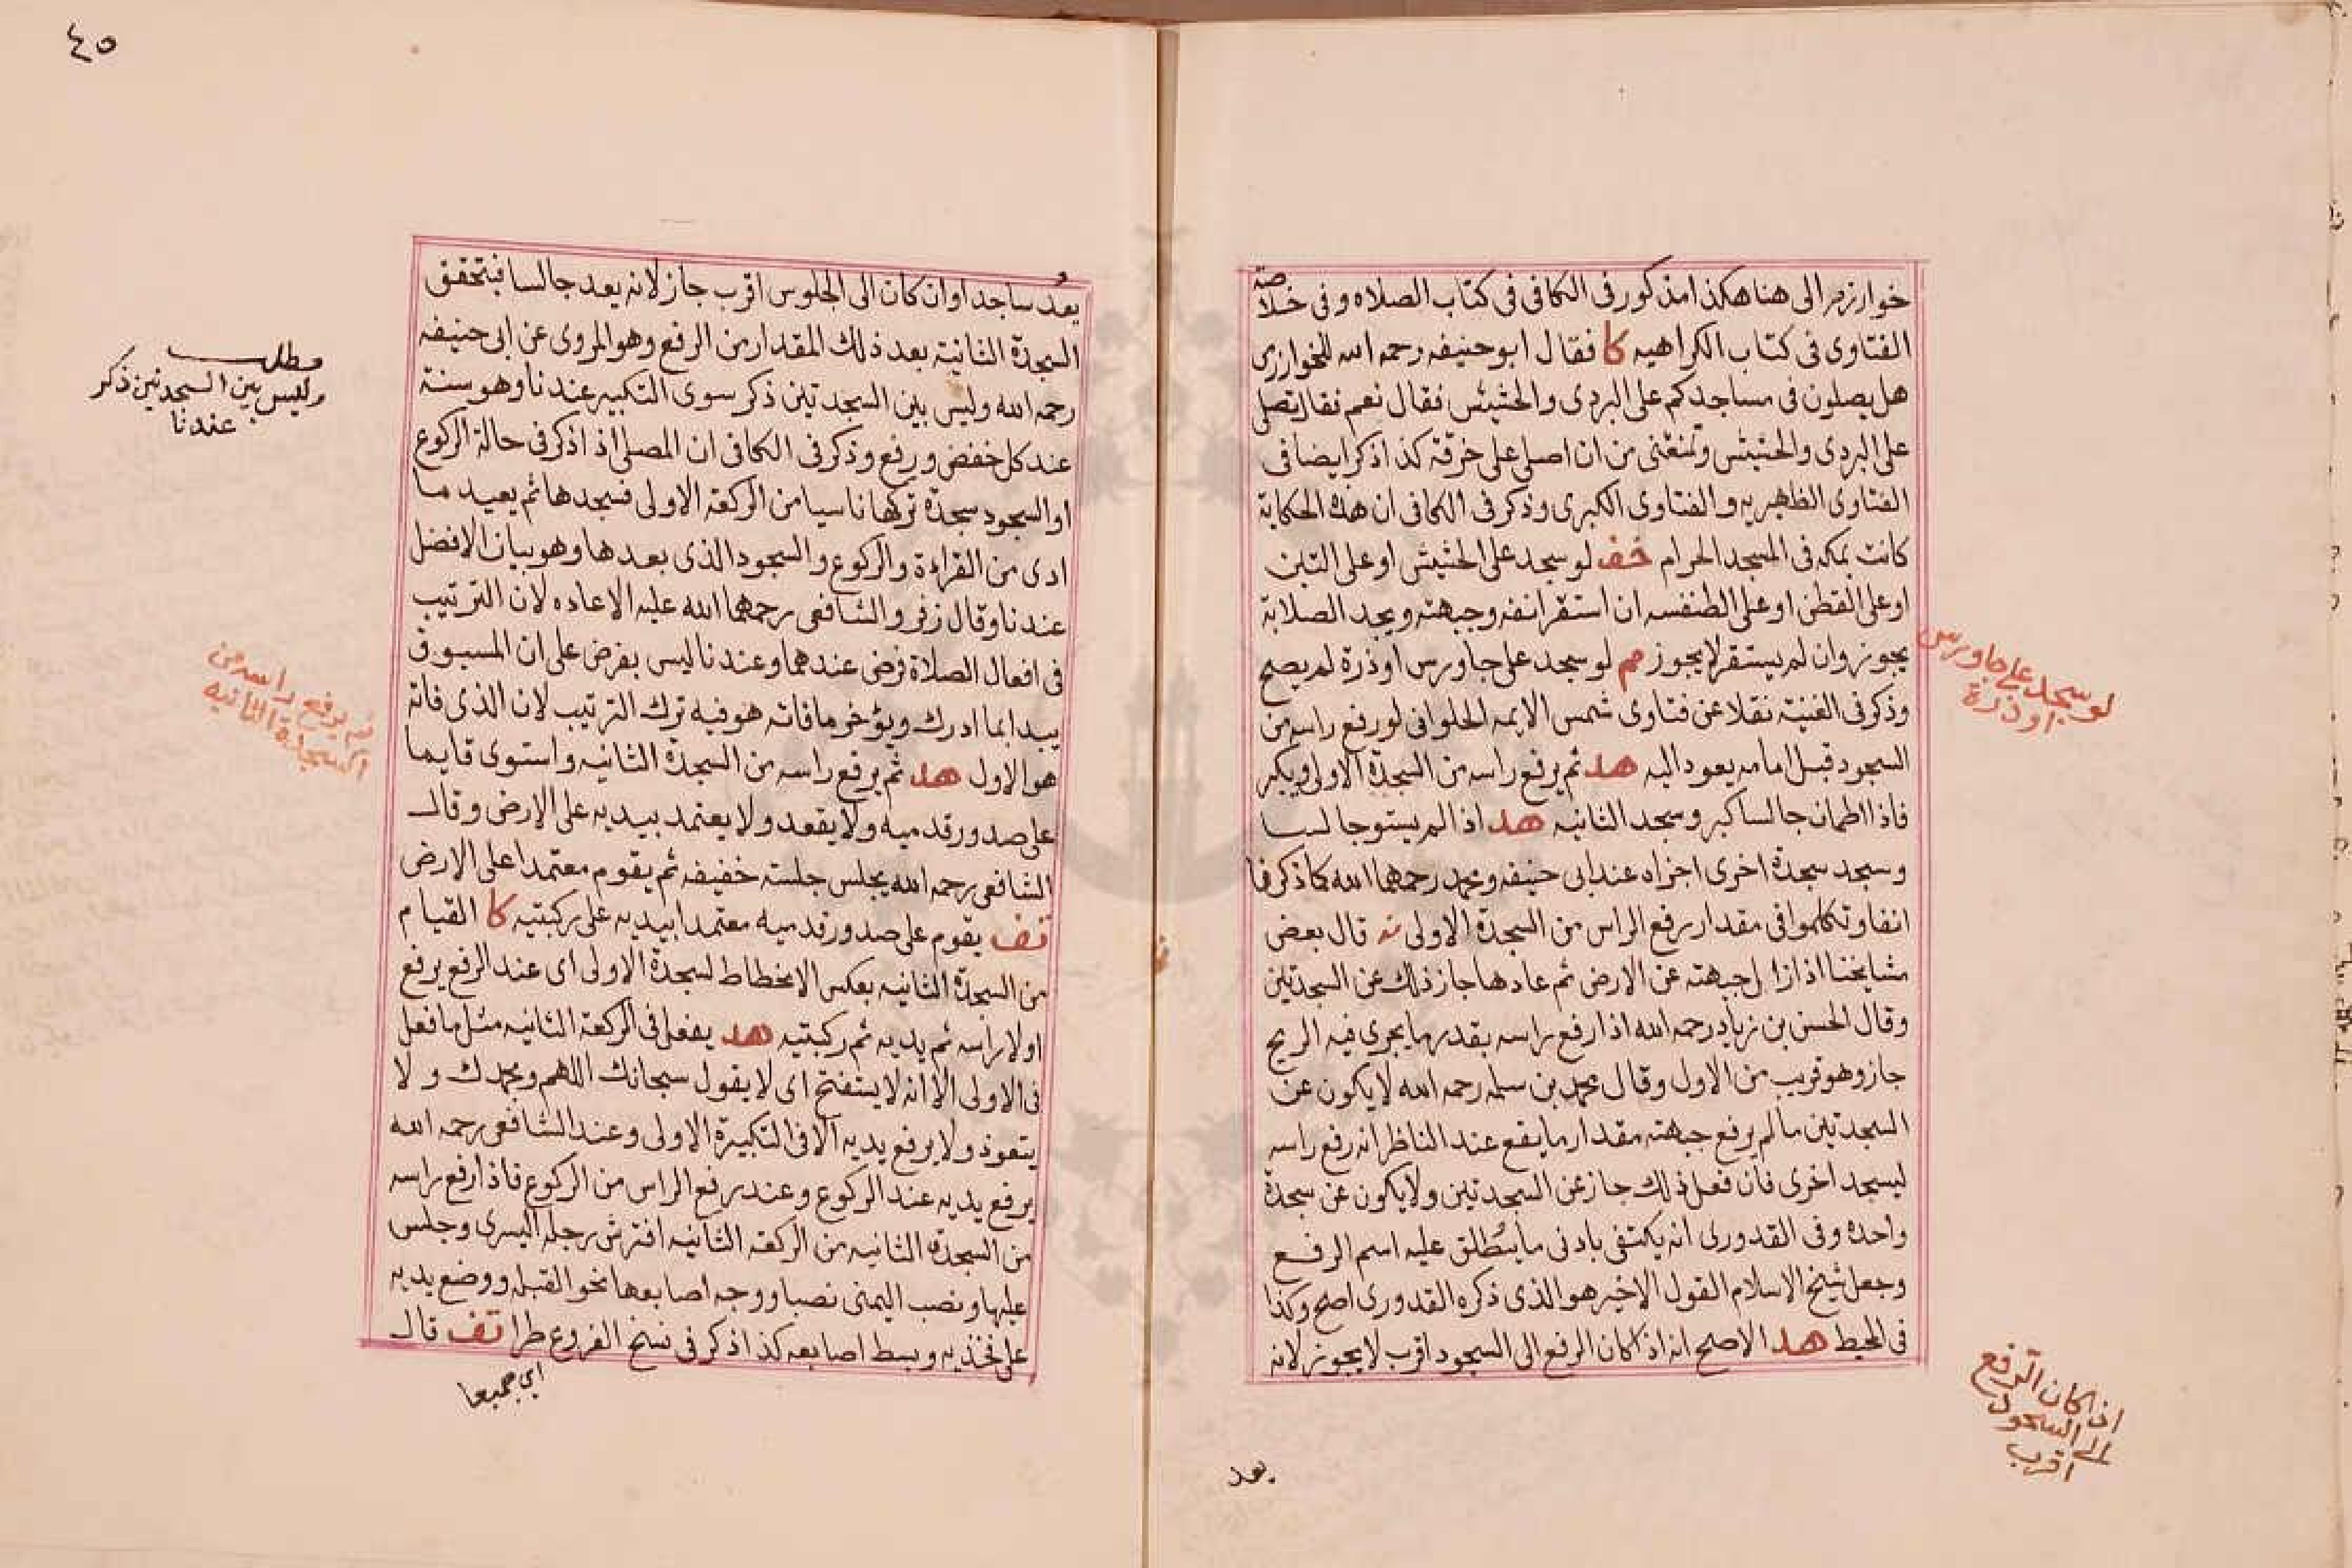 خوارزم الى هنا هكذا مذكور فى الكافى فى كتاب الصلاه وفى خلاصة
الفتاوى فى كتاب الكراهيه كا فقال ابوحنيفه رحمه الله للخوارزى
هل يصلون فى مساجدكم على البردى والحشيش فقال نعم فقال تصلى
على البردى والحشيش وتمنعنى من ان اصلى على خرقة كذا ذكر ايضا فى
الفتاوى الظهيريه والفتاوى الكبرى وذكر فى الكافى ان هذه الحكاية
كانت بمكه فى المسجد الحرام خف لو سجد على الحشيش او على التبن
او على القطن او على الطنفسه ان استقر انفه وجبهته ويجد الصلابة
يجوز وان لم يستقر لا يجوز م لو سجد على جاورس او ذرة لم يصح
وذكر فى القنية نقلا عن فتاوى شمس الايمه الحلوانى لو رفع راسه من
السجود قبل امامه يعود اليه هد ثم يرفع راسه من السجدة الاولى ويكبر
فاذا اطمان جالسا كبر وسجد الثانيه هد اذا لم يستو جالسا
وسجد سجدة اخرى اجزاه عند ابى حنيفه ومحمد رحمهما الله كما ذكرنا
انفا وتكلموا فى مقدار رفع الراس من السجدة الاولى نه قال بعض
مشايخنا اذا زال جبهته عن الارض ثم عادها جاز ذلك عن السجدتين
وقال الحسن بن زياد رحمه الله اذا رفع راسه بقدر ما يجرى فيه الريح
جاز وهو قريب من الاول وقال محمد بن سلمه رحمه الله لا يكون عن
السجدتين ما لم يرفع جبهته مقدار ما يقع عند الناظر انه رفع راسه
ليسجد اخرى فان فعل ذلك جاز عن السجدتين ولا يكون عن سجدة
واحده وفى القدورى انه يكتفى بادنى ما ينطلق عليه اسم الرفع
وجعل شيخ الاسلام القول الاخير هو الذى ذكره القدورى اصح وكذا
فى المحيط هد الاصح انه اذا كان الرفع الى السجود اقرب لا يجوز لانه
لو سجد على جاورس
او ذرة
اذا كان الرفع
الى السجود
اقرب
يعد
٤٥
يعد ساجدا وان كان الى الجلوس اقرب جاز لانه يعد جالسا فيتحقق
السجدة الثانية بعد ذلك المقدار من الرفع وهو المروى عن ابى حنيفه
رحمه الله وليس بين السجدتين ذكر سوى التكبير عندنا وهو سنة
عند كل خفض ورفع وذكر فى الكافى ان المصلى اذا ذكر فى حالة الركوع
او السجود سجدة تركها ناسيا من الركعة الاولى فسجدها ثم يعيد ما
ادى من القراءة والركوع والسجود الذى بعدها وهو بيان الافضل
عندنا وقال زفر والشافعى رحمهما الله عليه الاعاده لان الترتيب
فى افعال الصلاة فرض عندهما وعندنا ليس بفرض على ان المسبوق
يبدا بما ادرك ويؤخر ما فاته هو فيه ترك الترتيب لان الذى فاته
هو الاول هد ثم يرفع راسه من السجدة الثانيه واستوى قايما
على صدور قدميه ولا يقعد ولا يعتمد بيديه على الارض وقال
الشافعى رحمه الله يجلس جلسة خفيفه ثم يقوم معتمدا على الارض
تف يقوم على صدور قدميه معتمدا بيديه على ركبتيه كا القيام
من السجدة الثانيه بعكس الانحطاط لسجدة الاولى اى عند الرفع يرفع
اولا راسه ثم يديه ثم ركبتيه هد يفعل فى الركعة الثانيه مثل ما فعل
فى الاولى الا انه لا يستفتح اى لا يقول سبحانك اللهم وبحمدك ولا
يتعوذ ولا يرفع يديه الا فى التكبيرة الاولى وعند الشافعى رحمه الله
يرفع يديه عند الركوع وعند رفع الراس من الركوع فاذا رفع راسه
من السجدة الثانيه من الركعة الثانيه افترش رجله اليسرى وجلس
عليها ونصب اليمنى نصبا ووجه اصابعها نحو القبله ووضع يديه
على فخذيه وبسط اصابعه كذا ذكر فى نسخ الفروع طرا تف قال
اى جميعا
مطلب
وليس بين السجدتين ذكر
عندنا
ثم يرفع راسه من
السجدة الثانيه